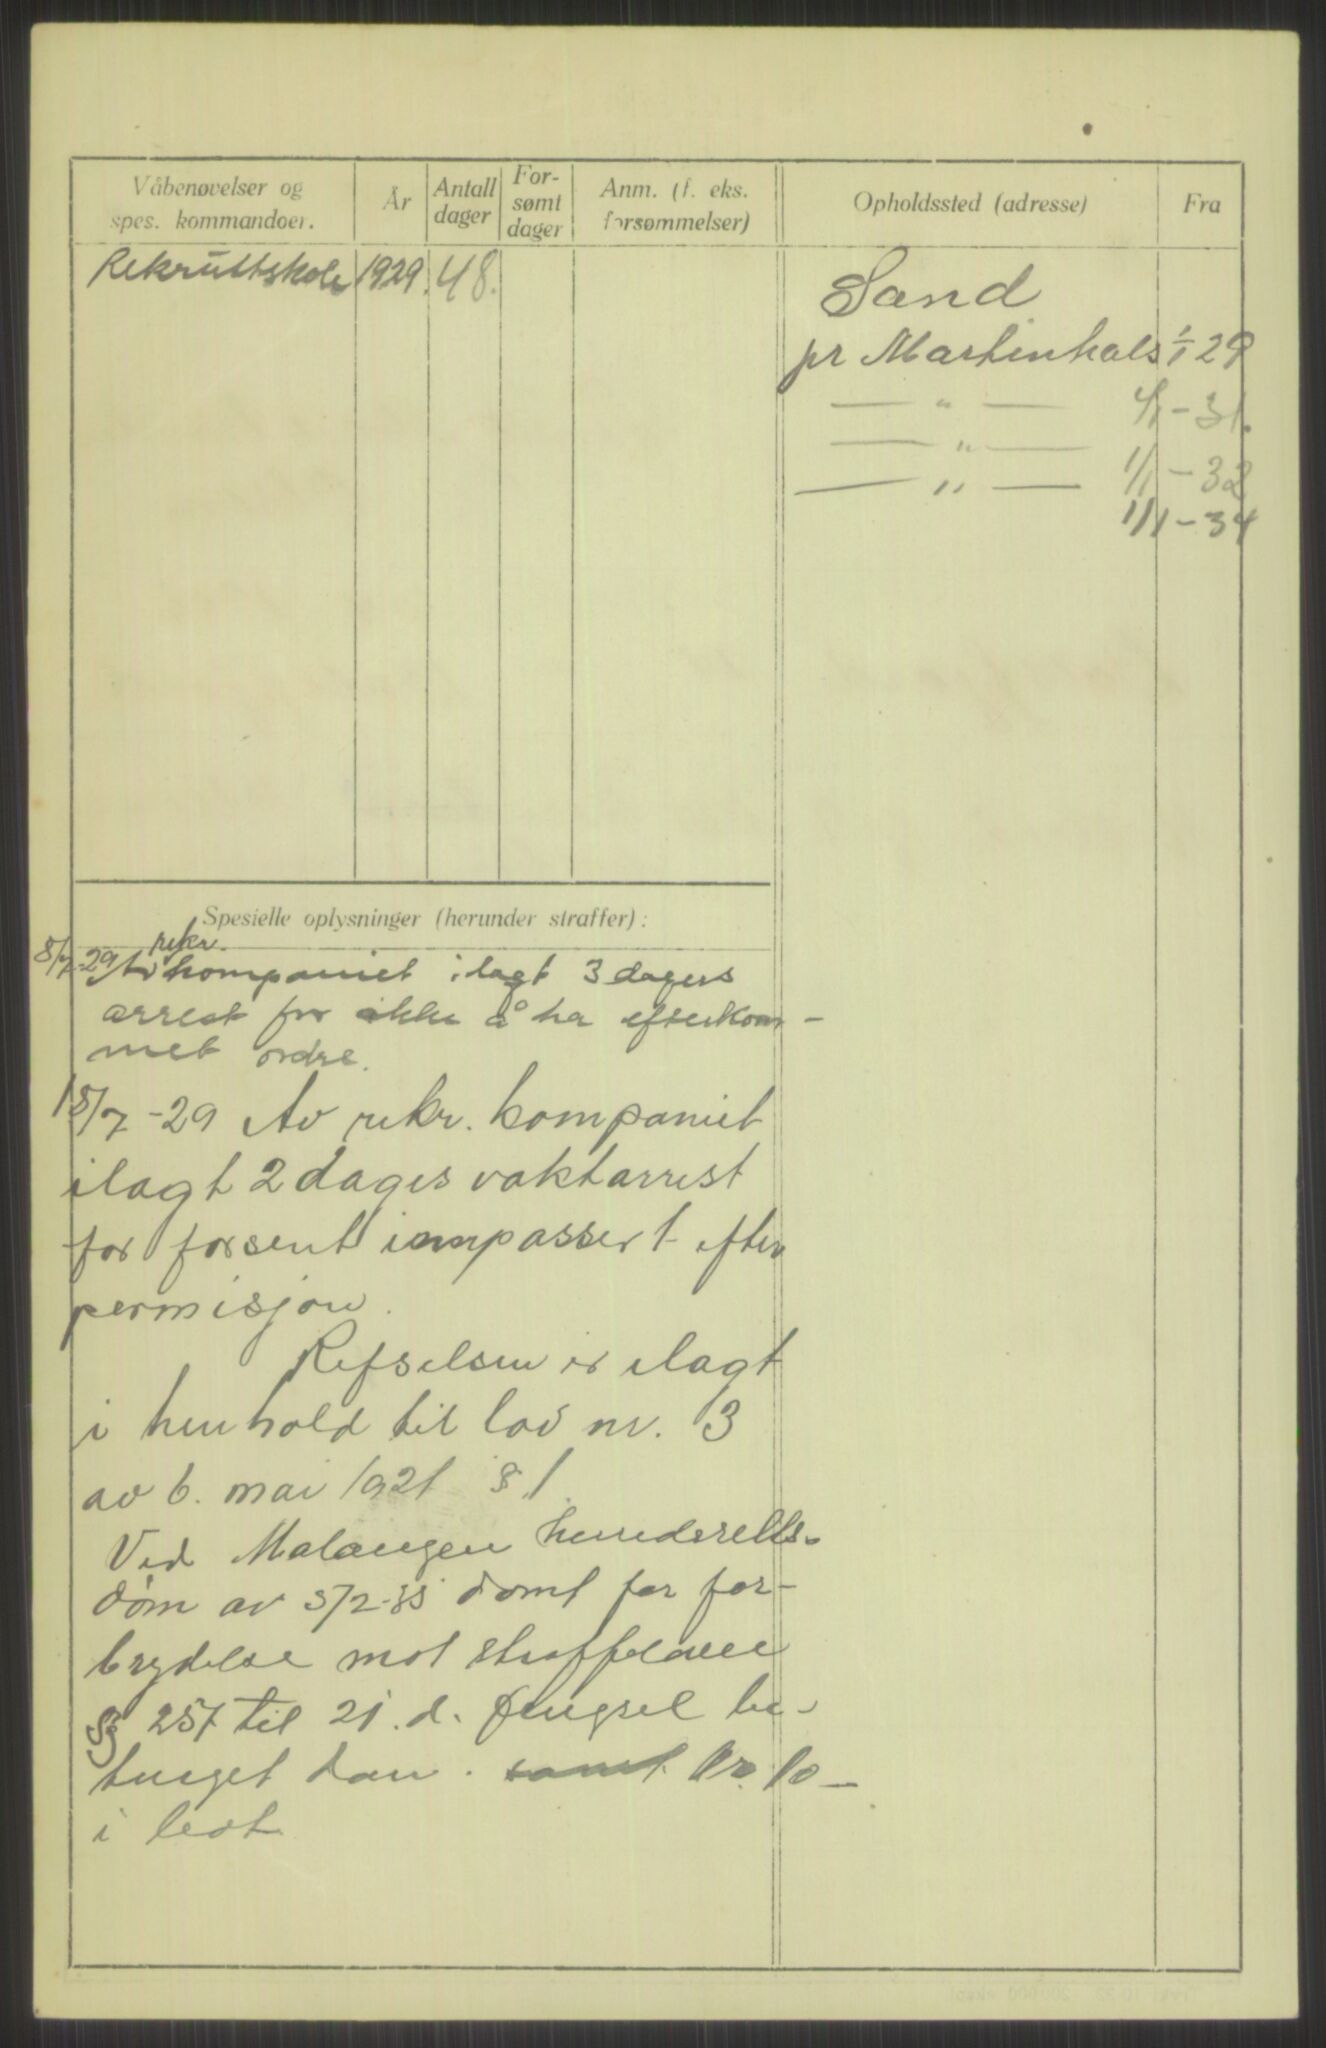 Våbenøvelser og
spes. kommandoer.
År
Antall
dager
For-
sømt
dager
Anm. (f. eks.
forsømmelser)
Opholdssted (adresse)
Fra
Rekruttskole 1929. 48.
Sand
pr Martinhals 1/1 29
— " — 1/1 - 31.
— " — 1/1 - 32
— " — 1/1 - 34
Spesielle oplysninger (herunder straffer):
rekr.
8/7-29 Av kompaniet ilagt 3 dagers
arrest for ikke å ha efterkom-
met ordre.
18/7 -29 Av rekr. kompaniet
ilagt 2 dages vaktarrest
for forsent innpassert efter
permisjon.
Refselsen er ilagt
i henhold til lov nr. 3
av 6. mai 1921 § 1.
Ved Malangen herredsretts-
dom av 5/2-35 dømt for for-
brydelse mot straffeloven
§ 257 til 21. d. fengsel be-
tinget dom. samt kr. 10 —
i bot